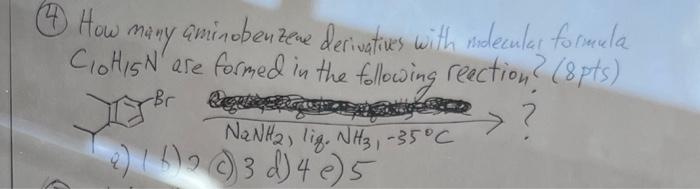 ④ How many aminobenzene derivatives with molecular formula
C10H15N are formed in the following reaction? (8pts)
Br
NaNH2, liq. NH3, -35°C
?
a) 1 b) 2 c) 3 d) 4 e) 5